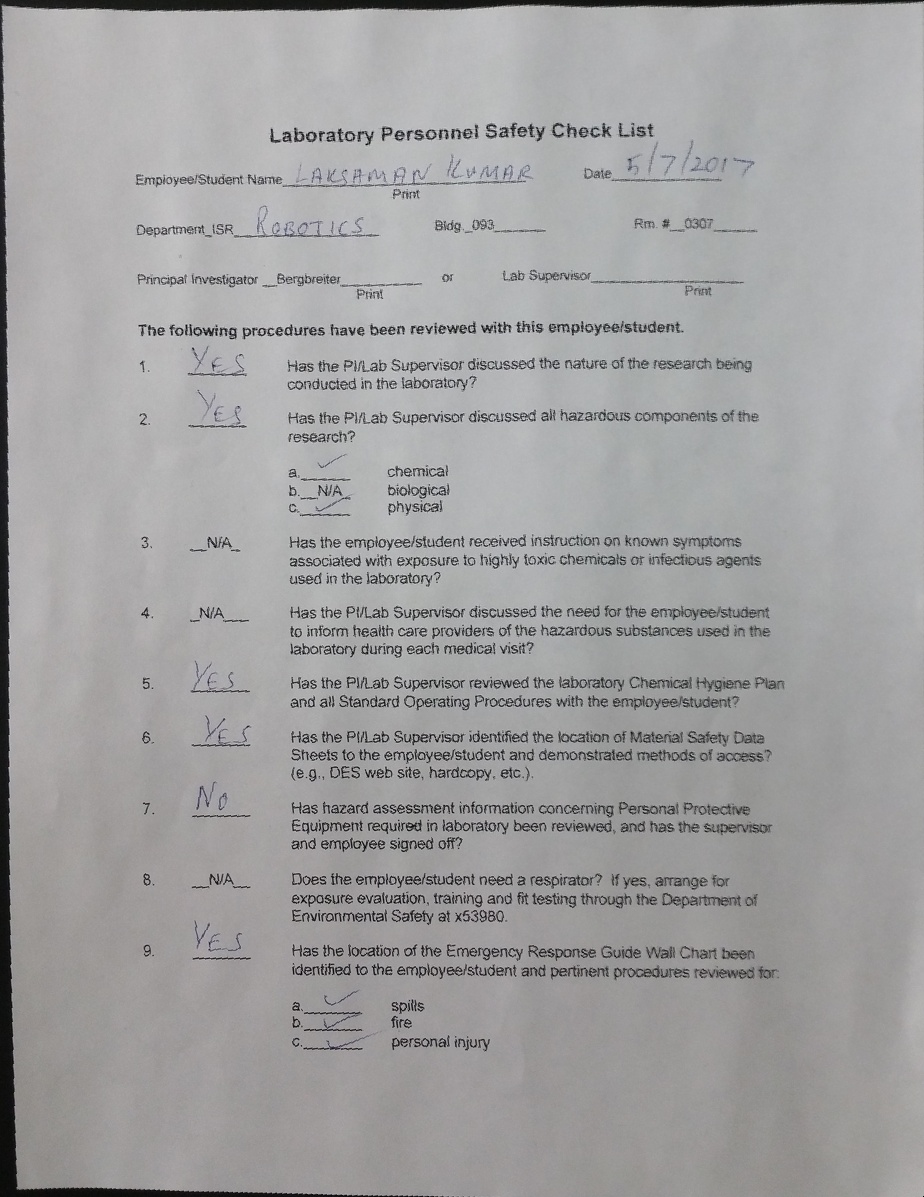 Laboratory Personnel Safety Check List
Employee/Student Name LAKSAMAN KUMAR Date 5/7/2017
Print
Department_ISR ROBOTICS Bldg._093 Rm. #_0307
Principal Investigator _Bergbreiter or Lab Supervisor
Print Print
The following procedures have been reviewed with this employee/student.
1. YES Has the PI/Lab Supervisor discussed the nature of the research being
conducted in the laboratory?
2. YES Has the PI/Lab Supervisor discussed all hazardous components of the
research?
a. ✓ chemical
b. N/A biological
c. ✓ physical
3. N/A Has the employee/student received instruction on known symptoms
associated with exposure to highly toxic chemicals or infectious agents
used in the laboratory?
4. N/A Has the PI/Lab Supervisor discussed the need for the employee/student
to inform health care providers of the hazardous substances used in the
laboratory during each medical visit?
5. YES Has the PI/Lab Supervisor reviewed the laboratory Chemical Hygiene Plan
and all Standard Operating Procedures with the employee/student?
6. YES Has the PI/Lab Supervisor identified the location of Material Safety Data
Sheets to the employee/student and demonstrated methods of access?
(e.g., DES web site, hardcopy, etc.).
7. NO Has hazard assessment information concerning Personal Protective
Equipment required in laboratory been reviewed, and has the supervisor
and employee signed off?
8. N/A Does the employee/student need a respirator? If yes, arrange for
exposure evaluation, training and fit testing through the Department of
Environmental Safety at x53980.
9. YES Has the location of the Emergency Response Guide Wall Chart been
identified to the employee/student and pertinent procedures reviewed for:
a. ✓ spills
b. ✓ fire
c. ✓ personal injury